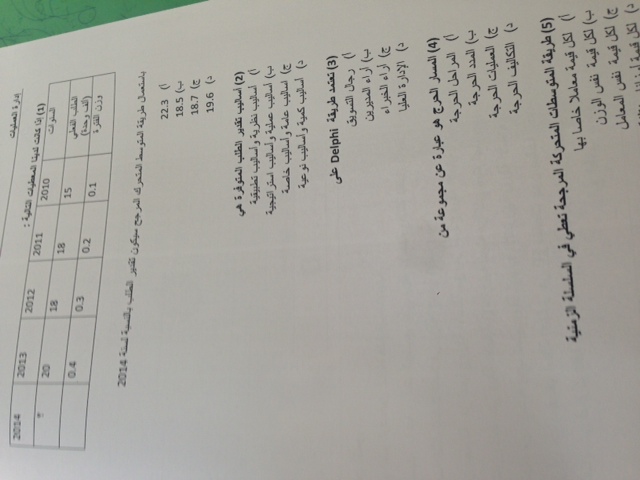 إدارة العمليات
(1) إذا كانت لدينا المعطيات التالية :
السنوات 2010 2011 2012 2013 2014
الطلب الفعلي (ألف وحدة) 15 18 18 20 ؟
وزن الفترة 0.1 0.2 0.3 0.4
باستعمال طريقة المتوسط المتحرك المرجح سيكون تقدير الطلب بالنسبة لسنة 2014
أ) 22.3
ب) 18.5
ج) 18.7
د) 19.6
(2) أساليب تقدير الطلب المتوفرة هي
أ) أساليب نظرية وأساليب تطبيقية
ب) أساليب عملية وأساليب استراتيجية
ج) أساليب عامة وأساليب خاصة
د) أساليب كمية وأساليب نوعية
(3) تعتمد طريقة Delphi على
أ) رجال التسويق
ب) آراء المديرين
ج) آراء الخبراء
د) الإدارة العليا
(4) المسار الحرج هو عبارة عن مجموعة من
أ) المراحل الحرجة
ب) المدد الحرجة
ج) العمليات الحرجة
د) التكاليف الحرجة
(5) طريقة المتوسطات المتحركة المرجحة تعطي في السلسلة الزمنية
أ) لكل قيمة معاملا خاصا بها
ب) لكل قيمة نفس الوزن
ج) لكل قيمة نفس المعامل
د) لكل قيمة